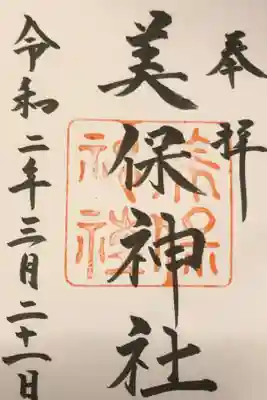 奉拝
美保神社
令和二年三月二十一日
美保
神社